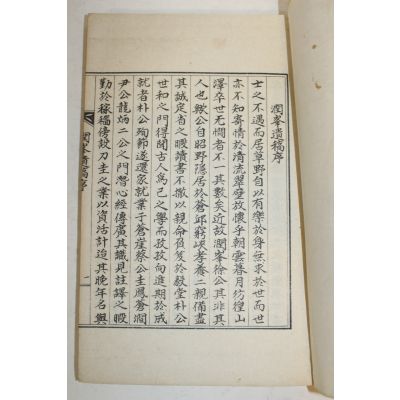 澗峯遺稿序
士之不遇而居草野自以有樂於身無求於世而世
亦不知寄情於清流翠壁放懷乎朝雲暮月彷徨山
澤卒世无悶者不一其數矣近故澗峯徐公其非其
人也歟公自昭野隱居於蒼邱窮峽孝養二親備盡
其誠定省之暇讀書不撤以親命負笈於毅堂朴公
世和之門得聞古人為己之學而孜孜向進期於成
就者朴公殉節遂還家就業于蒼崖蔡公圭鳳蒼澗
尹公龍炳二公之門潛心經傳廣其識見註譯之暇
勤於稼穡傍效刀圭之業以資活計迨其晚年名與
澗峯遺稿序
一